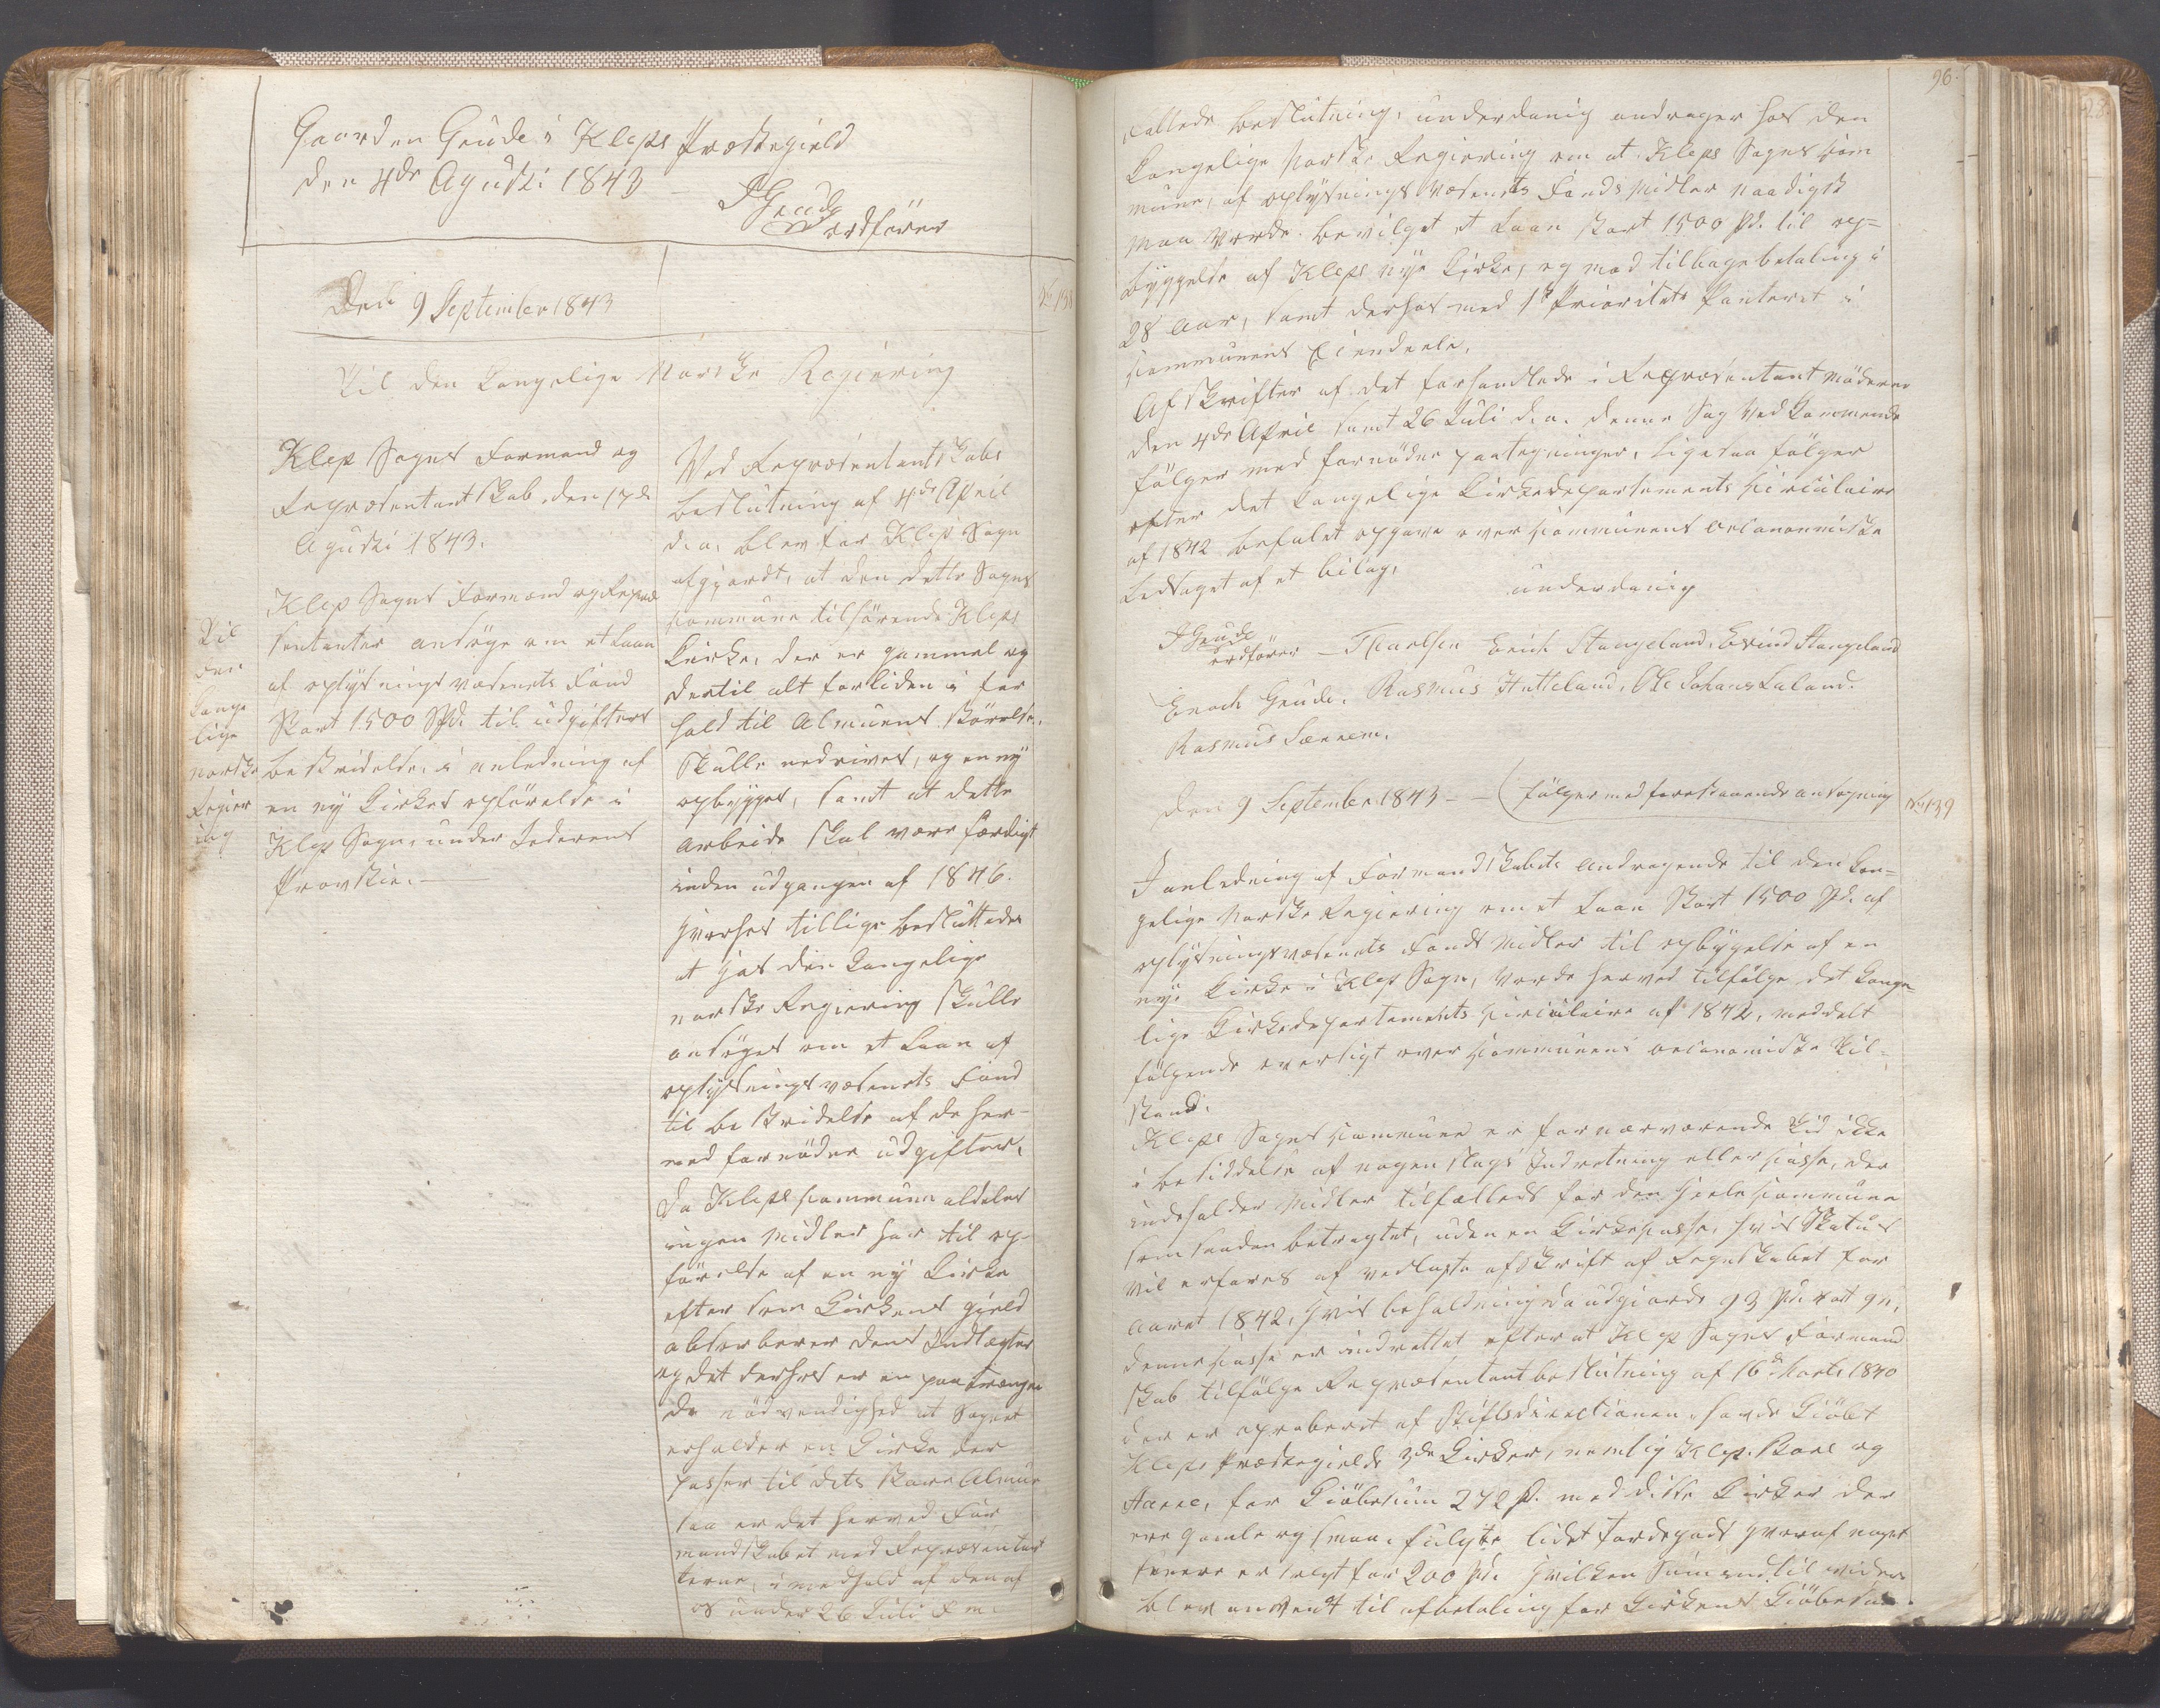 Gaarden Grude i Kleps Præstegield
den 4de Agusti 1843
JGrude
ordfører
Den 9 September 1843
No 138
Til den Kongelige Norske Regiering
Til
den
Konge
lige
norske
Regier
ing
Klep Sogns Formænd og
Repræsentantskab, den 17de
Agusti 1843.
Klep Sogns Formænd og Repræ
sentanter ansøge om et Laan
af oplysningsvæsenets Fond
stort 1500 Spd. til udgifters
bestridelse, i anledning af
en ny Kirkes opførelse i
Klep Sogn, under Jederens
Provstie.
Ved Repræsentantskabs
beslutning af 4de April
d.a. blev for Klep Sogn
afgjordt, at den dette Sogns
Commune tilhørende Kleps
Kirke, der er gammel og
dertil alt forliden i for
hold til Almuens størelse,
skulle nedrives, og en ny
opbygges, samt at dette
arbeide skal være færdigt
inden udgangen af 1846.
Hvorhos tillige besluttedes
at hos den Kongelige
norske Regiering skulle
ansøges om et Laan af
oplysningsvæsenets Fond
til bestridelse af de her-
med fornødne udgifter,
da Kleps Commune aldeles
ingen Midler har til op-
førelse af en ny Kirke
efter som Kirkens gield
absorberer dens Indtægter
og det derhos er en paatrængen
de nødvendighed at Sognet
erholder en Kirke der
passer til dets store Almue
saa er det herved For
mandskabet med Repræsentan
terne, i medhold af den af
os under 26 Juli d.a.
96.
fattede beslutning, underdanig andrager hos den
Kongelige Norske Regiering om at Kleps Sogns Com
mune, af oplysningsvæsenets Fonds Midler naadigst
maa vorde bevilget et Laan stort 1500 Spd. til op-
byggelse af Kleps nye Kirke, og med tilbagebetaling i
28 Aar, samt derhos med 1te Prioritets Panteret i
Communens Eiendeele,
Afskrifter af det forhandlede i Repræsentant Møderne
den 4de April samt 26 Juli d.a. denne Sag Vedkommende
følger med fornødne paategninger, ligesaa følger
efter det Kongelige Kirkedepartements Circulaire
af 1842 befalet opgave over Communens oeconomiske
Ledsaget af et bilag,
underdanig
JGrude
ordfører – TCarlsen Erich Stangeland, Evind Stangeland
Enoch Grude, Rasmus Hatteland, Ole Johans Laland.
Rasmus Lænnem.
Den 9 September 1843 – (følger med forestaaende ansøgning
No 139
I anledning af Formandskabets andragende til den Kon-
gelige Norske Regiering om et Laan Stort 1500 Spd. af
oplysningsvæsenets Fonds Midler til opbygelse af en
nye Kirke i Klep Sogn, vorde herved tilfølge det Konge-
lige Kirkedepartements Circulaire af 1842, meddelt
følgende oversigt over Communens oeconomiske Til-
stand.
Kleps Sogns Commune er fornærværende Tid ikke
i besiddelse af nogen slags Indretning eller Casse, der
indeholder Midler tilfælleds for den heele Commune
som saadan betragtet, uden en Kirkecasse, hvis Status
vil erfares af vedlagte afskrift af Regnskabet for
Aaret 1842, hvis beholdning da udgiorde 93 Spd.
denne Casse er indrettet efter at Klep Sogns Formand
skab tilfølge Repræsentantbeslutning af 16de Marts 1840
der er aproberet af Stiftsdirectionen, havde Kiøbt
Kleps Præstegields 3de Kirker, nemlig Klep, Bore og
Orre, for Kiøbesum 272 Sp. med disse Kirker der
ere gamle og smaa, fulgte lidet Jordegods hvoraf noget
senere er solgt for 200 Spd. hvilken Sum indtil videre
blev anvendt til afbetaling for Kirkens Kiøbesum.